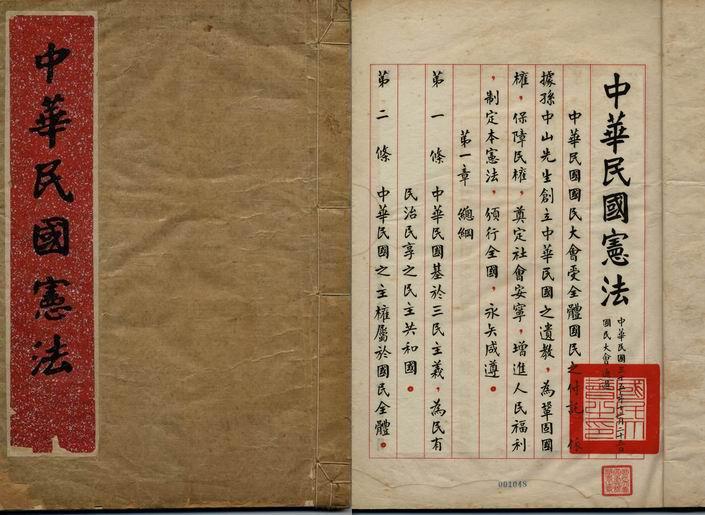 中華民國憲法
中華民國憲法
中華民國三十五年十二月二十五日
國民大會通過
中華民國國民大會受全體國民之付託,依
據孫中山先生創立中華民國之遺教,為鞏固國
權,保障民權,奠定社會安寧,增進人民福利
,制定本憲法,頒行全國,永矢咸遵。
第一章 總綱
第一條 中華民國基於三民主義,為民有
民治民享之民主共和國。
第二條 中華民國之主權屬於國民全體。
國民大會之印
001048